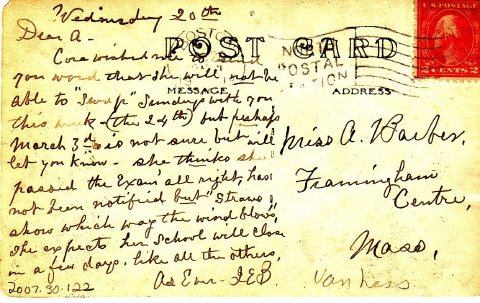 Wednesday 20th
Dear A-
Cora wished me to send
you word that she will not be
able to "swap" Sundays with you
this week - (the 24th) but perhaps
March 3d. is not sure but will
let you know - she thinks she
passed the Exam' all right, has
not been notified but "straws
show which way the wind blows",
she expects her school will close
in a few days, like all the others,
As Ever - I.E.B
2007.30.122
POST CARD
MESSAGE
ADDRESS
BOSTON
POSTAL
STATION
U.S. POSTAGE
2 CENTS 2
Miss A. Barber,
Framingham
Centre,
Mass,
Van Ness